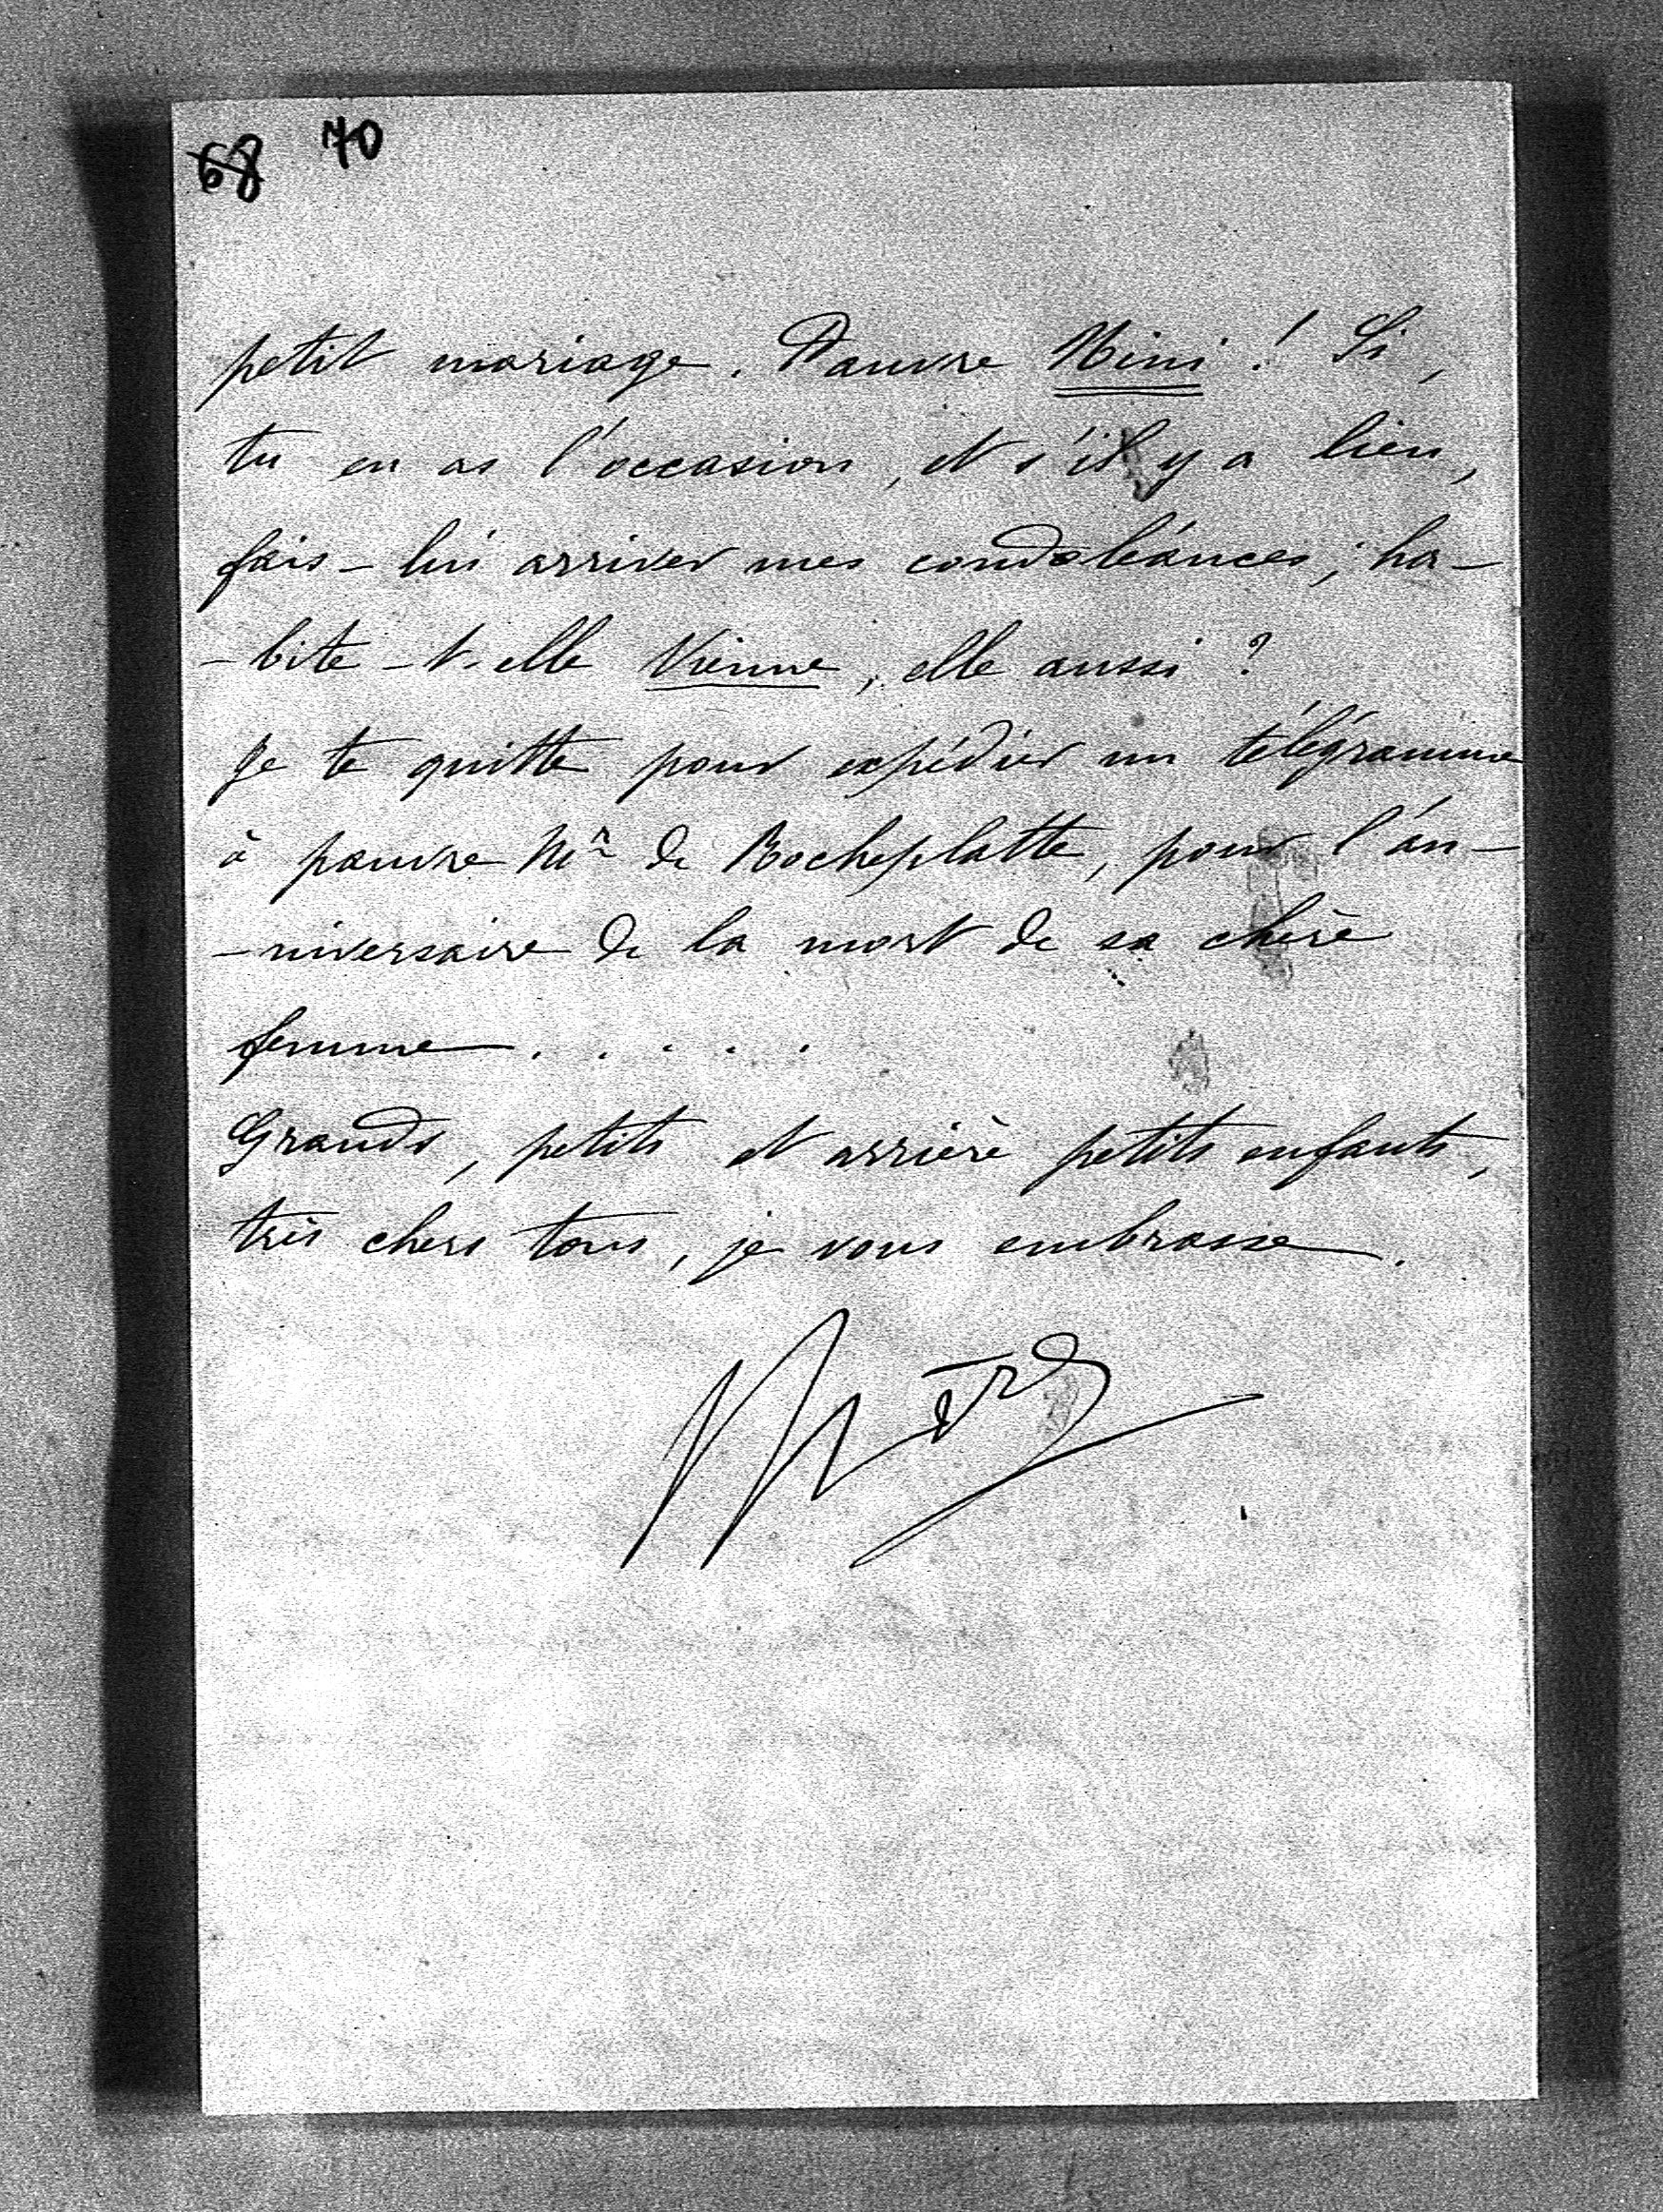 68 70
petit mariage. Pauvre Mini ! Si,
tu en as l'occasion, et s'il y a lieu,
fais-lui arriver mes condoléances ; ha-
-bite-t-elle Vienne, elle aussi ?
Je te quitte pour expédier un télégramme
à pauvre Mr de Rocheplatte, pour l'an-
-niversaire de la mort de sa chère
femme . . . . .
Grands, petits et arrière petits enfants,
très chers tous, je vous embrasse.